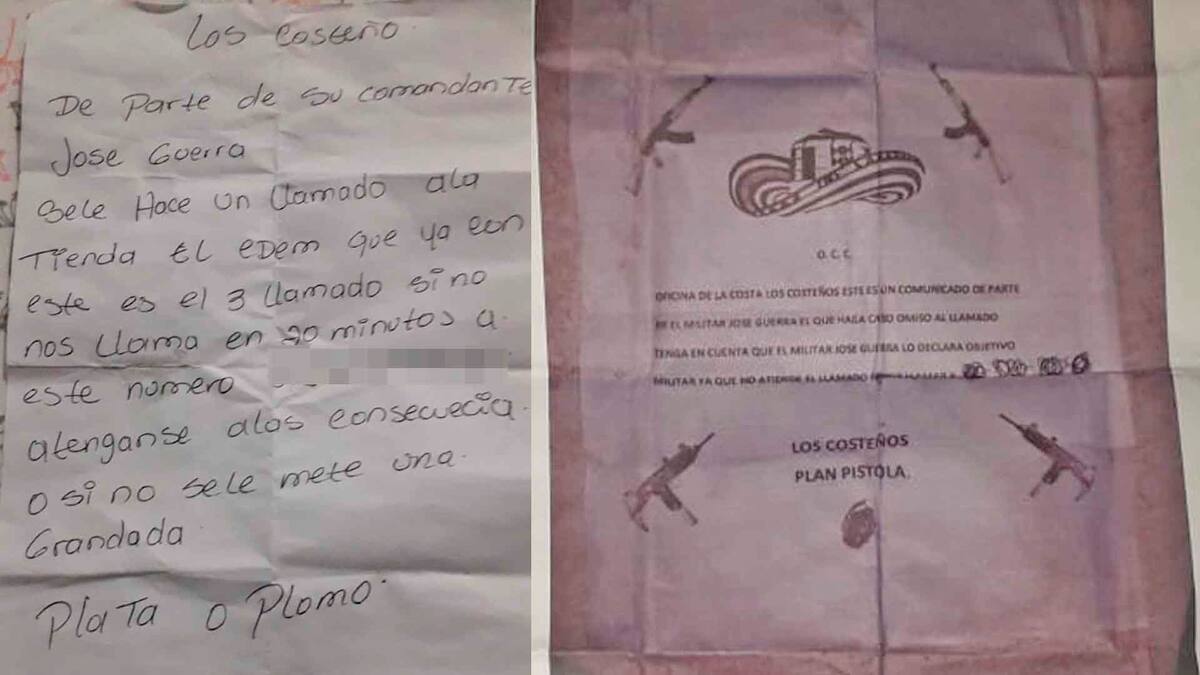 Los Costeño
De Parte de su comandante
Jose Guerra
Sele Hace un llamado ala
Tienda EL EDEM que ya con
este es el 3 llamado sino
nos llama en 20 minutos a
este numero
atenganse alas consecuecia
o si no sele mete una
Grandada
Plata o Plomo
O.C.C.
OFICINA DE LA COSTA LOS COSTEÑOS ESTE ES UN COMUNICADO DE PARTE
DE EL MILITAR JOSE GUERRA EL QUE HAGA CASO OMISO AL LLAMADO
TENGA EN CUENTA QUE EL MILITAR JOSE GUERRA LO DECLARA OBJETIVO
MILITAR YA QUE NO ATIENDE EL LLAMADO
LOS COSTEÑOS
PLAN PISTOLA.